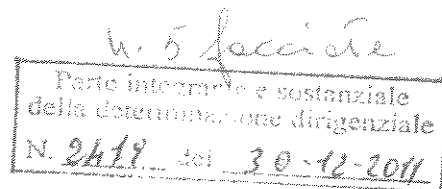 N. 5 facciate
Parte integrante e sostanziale
della determinazione dirigenziale
N. 2418 del 30-12-2011